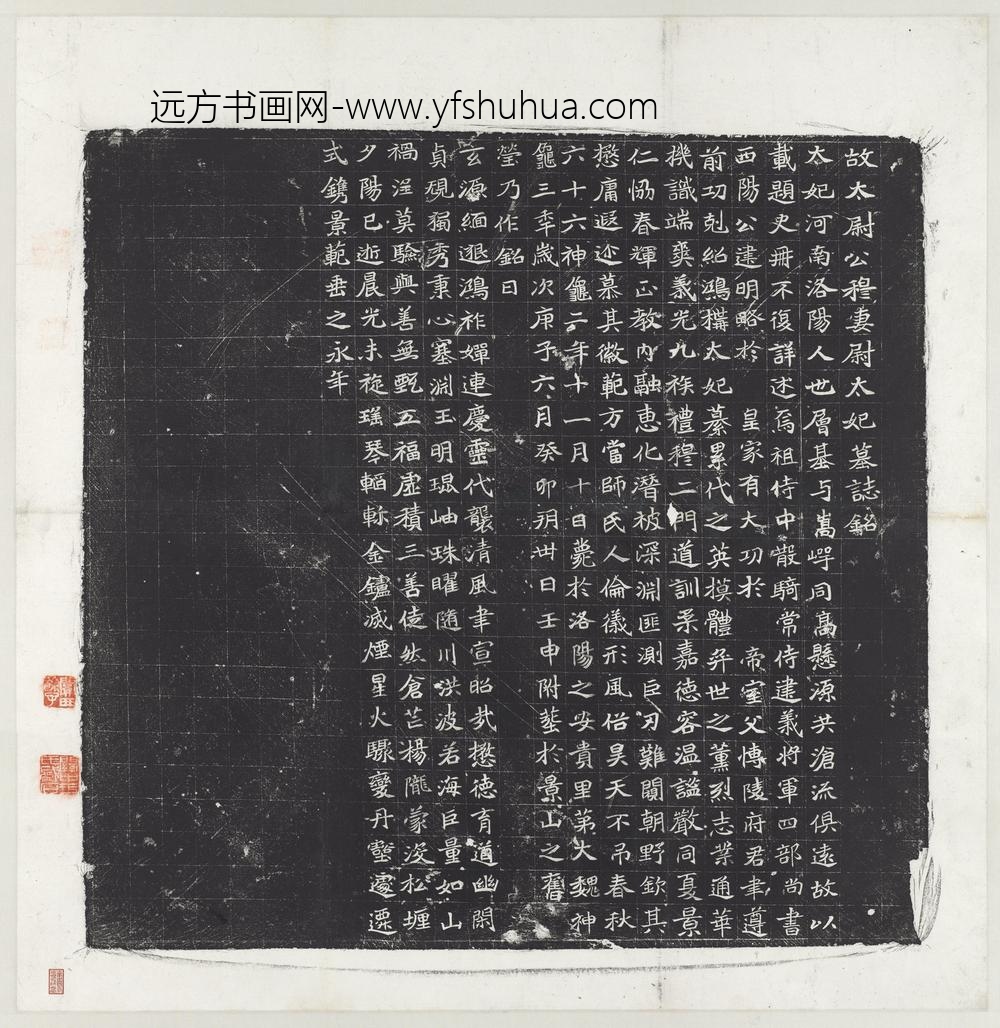 远方书画网-www.yfshuhua.com
故太尉公穆妻尉太妃墓誌銘
太妃河南洛陽人也層基与嵩㟧同高懸源共滄流俱遠故以
載題史冊不復詳述焉祖侍中散騎常侍建義將軍四部尚書
西陽公建明略於皇家有大功於帝室父博陵府君聿遵
前功剋紹鴻猷太妃纂累代之英摸體弈世之薰烈志業通華
機識端爽羲光九族禮穆二門道訓柔嘉德容温謐聲同夏景
仁恊春輝正教内融恵化潛被深淵匪測巨刃難闚朝野欽其
懋庸遐迩慕其徽範方當師氏人倫儀形風俗昊天不吊春秋
六十六神龜二年十一月十日薨於洛陽之安貴里第大魏神
龜三年歲次庚子六月癸卯朔卅日壬申附塟於景山之舊
塋乃作銘曰
玄源緬邈鴻祚嬋連慶靈代襲清風聿宣昭哉懋德育道幽閑
貞碗獨秀秉心塞淵玉明琨岫珠曜隨川洪波若海巨量如山
禍淫莫驗與善無甄五福虛積三善徒然倉芒楊隴蒙淡松堙
夕陽已逝晨光未旋瑶琴輟軫金鑪滅煙星火驟變丹壑遽遷
式鐫景範垂之永年